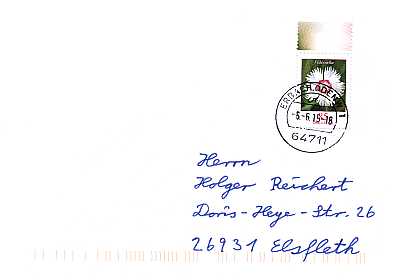 Federnelke
ERBACH, ODENW 1
-6.-6.19-18
64711
Herrn
Holger Reichert
Doris-Heye-Str. 26
26931 Elsfleth